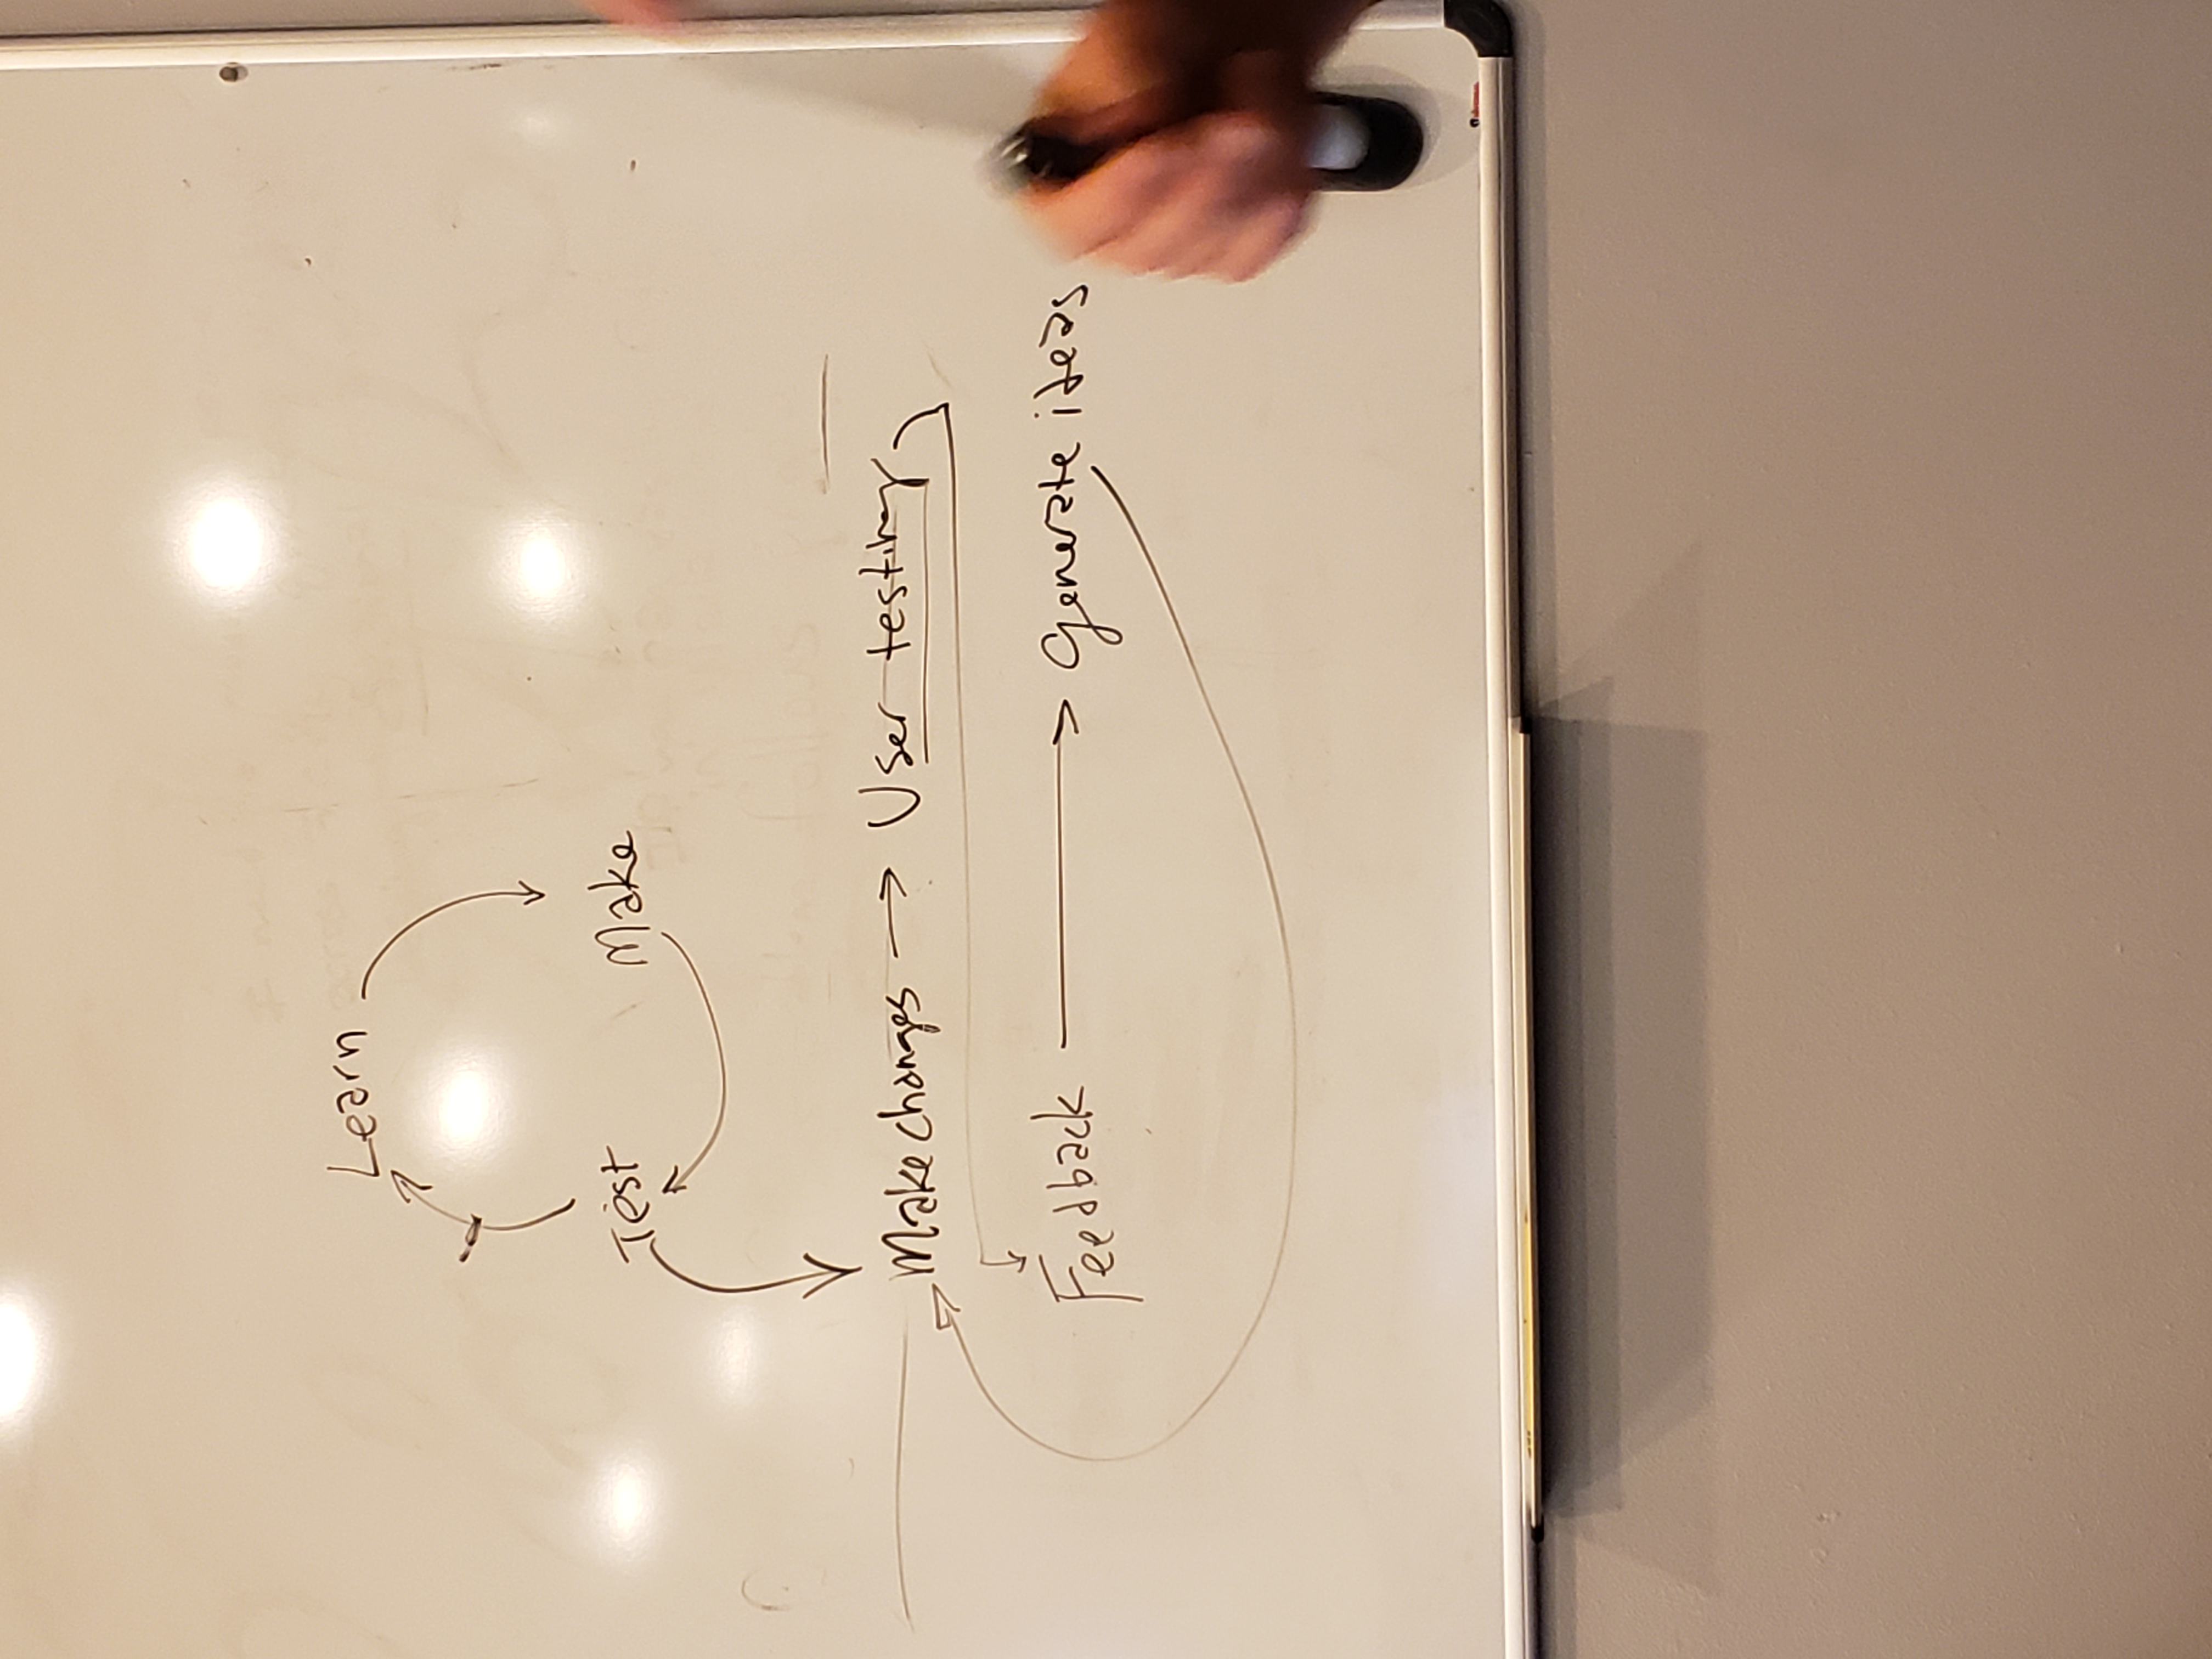 Learn
Test Make
Make changes → User testing
Feedback → Generate ideas